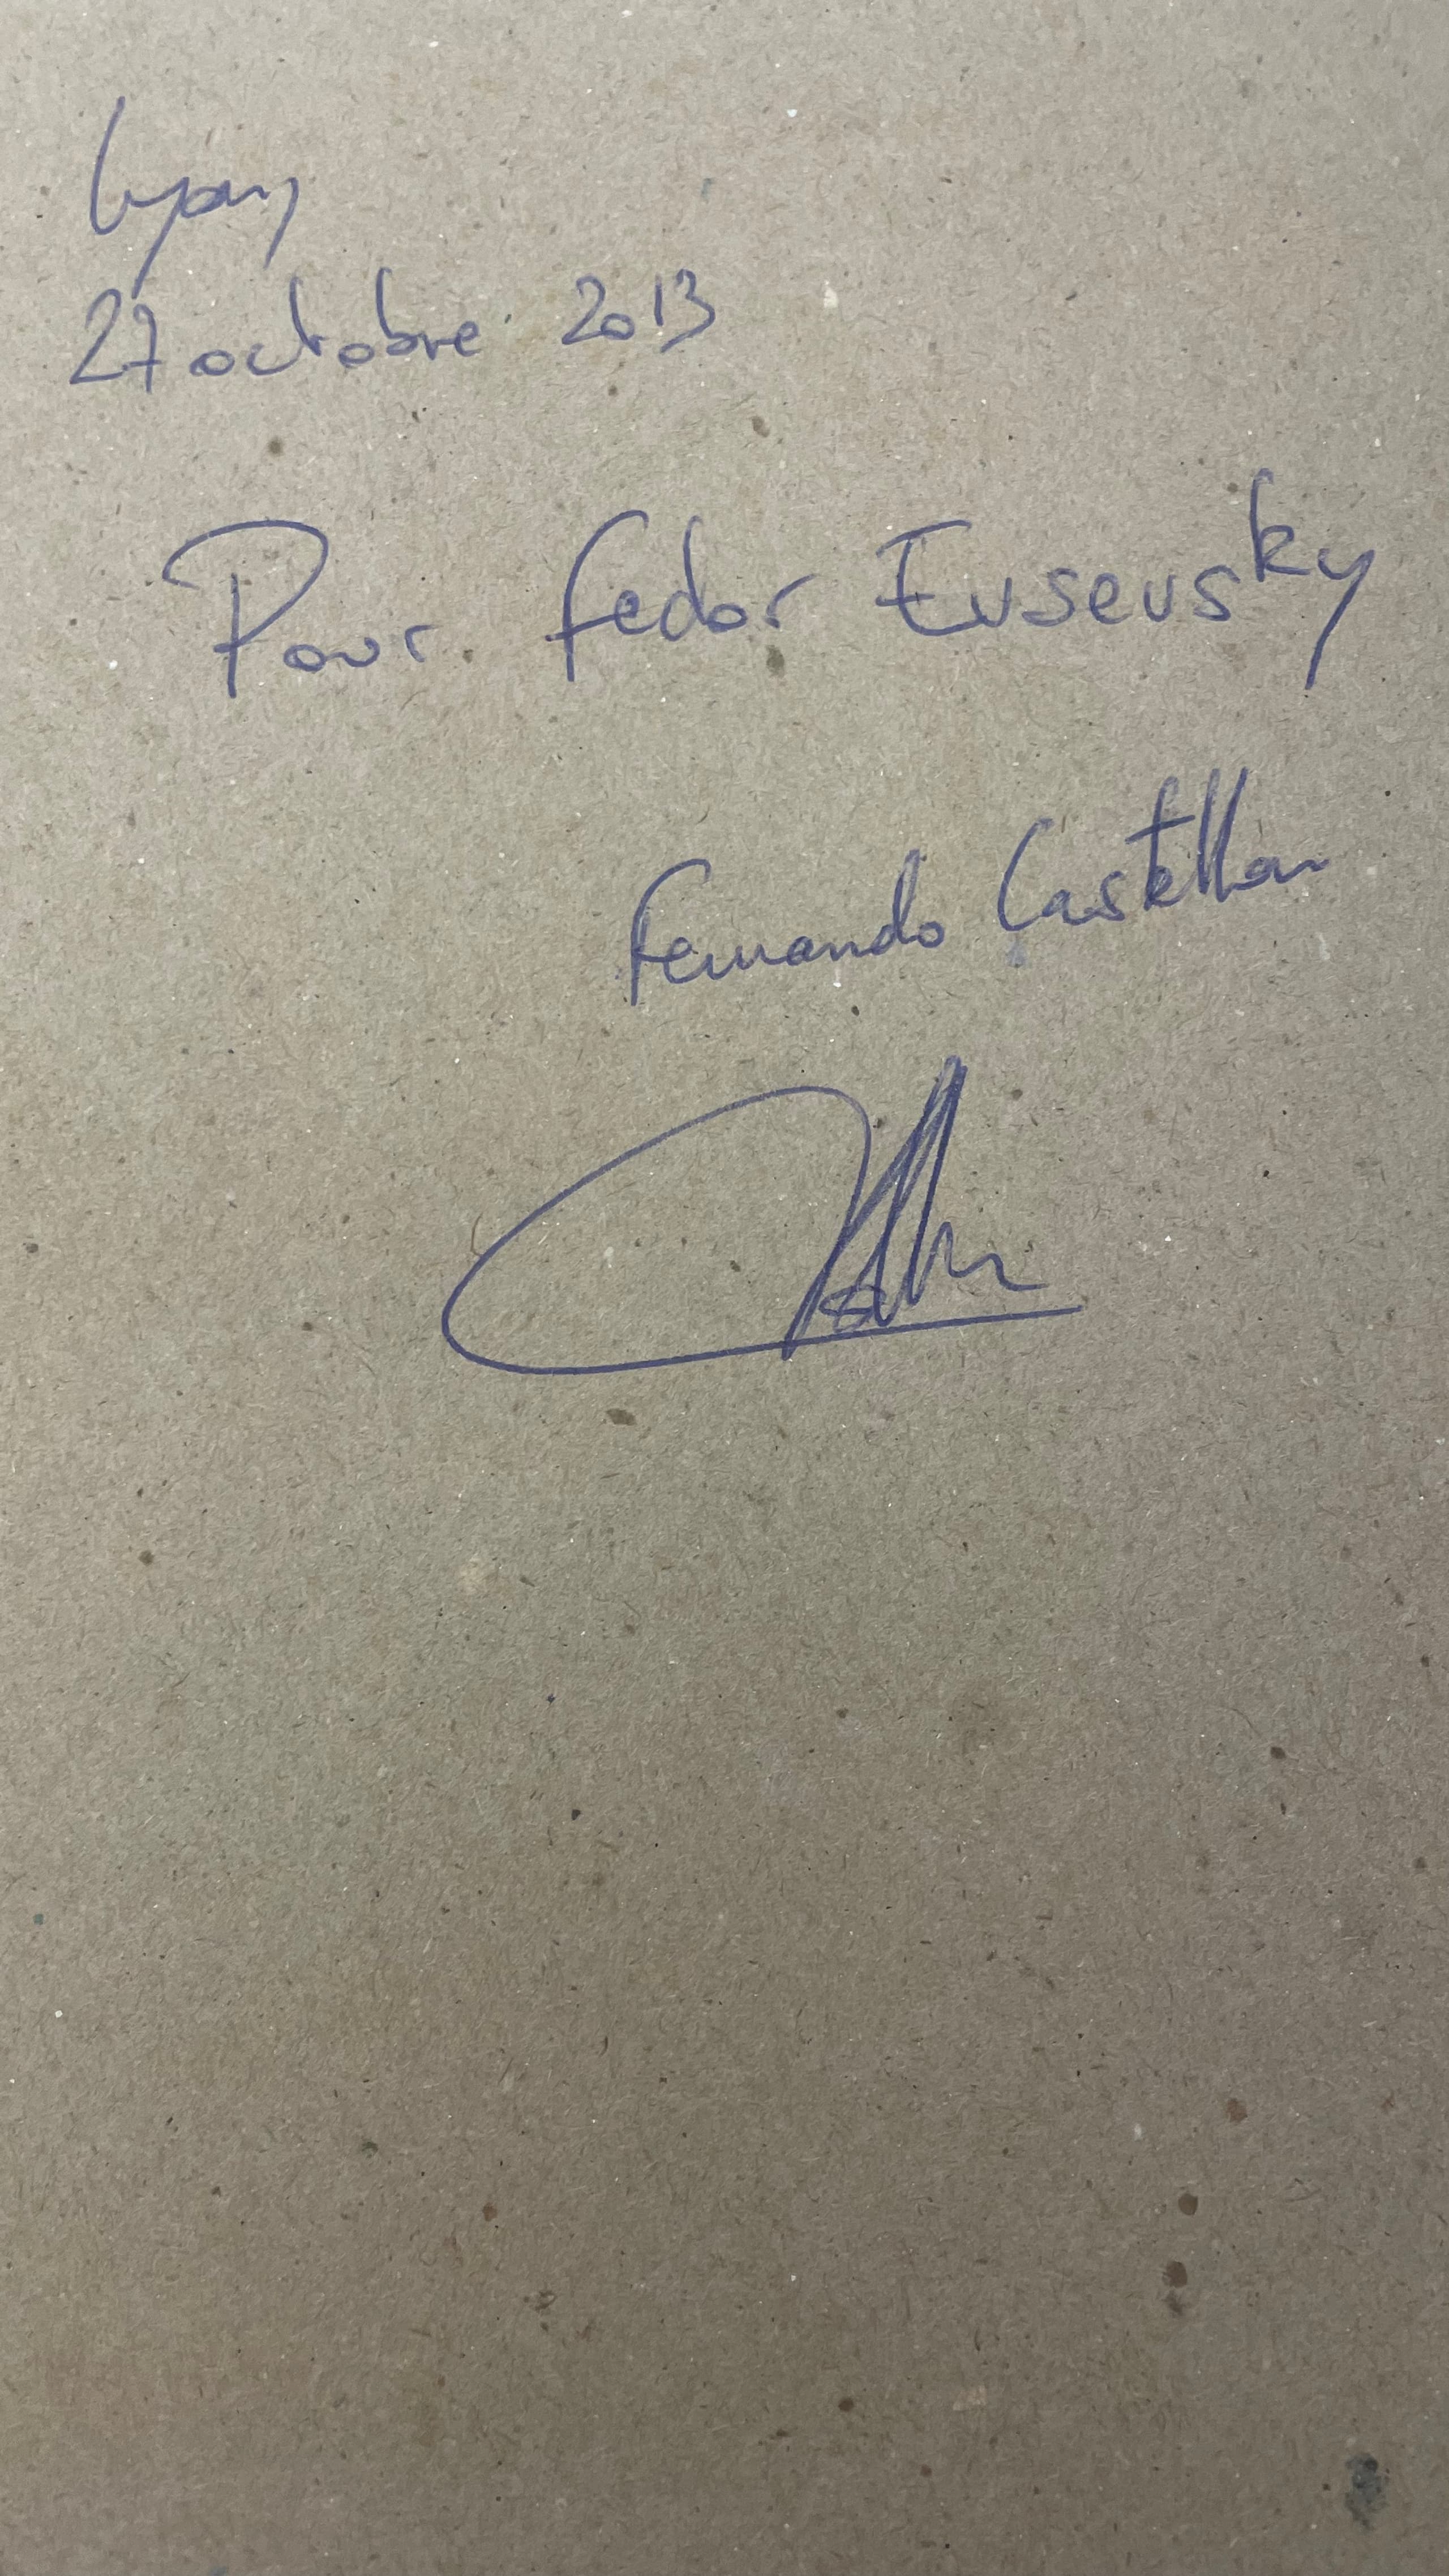 Lyon,
27 octobre 2013
Pour Fedor Evsevsky
Fernando Castellon